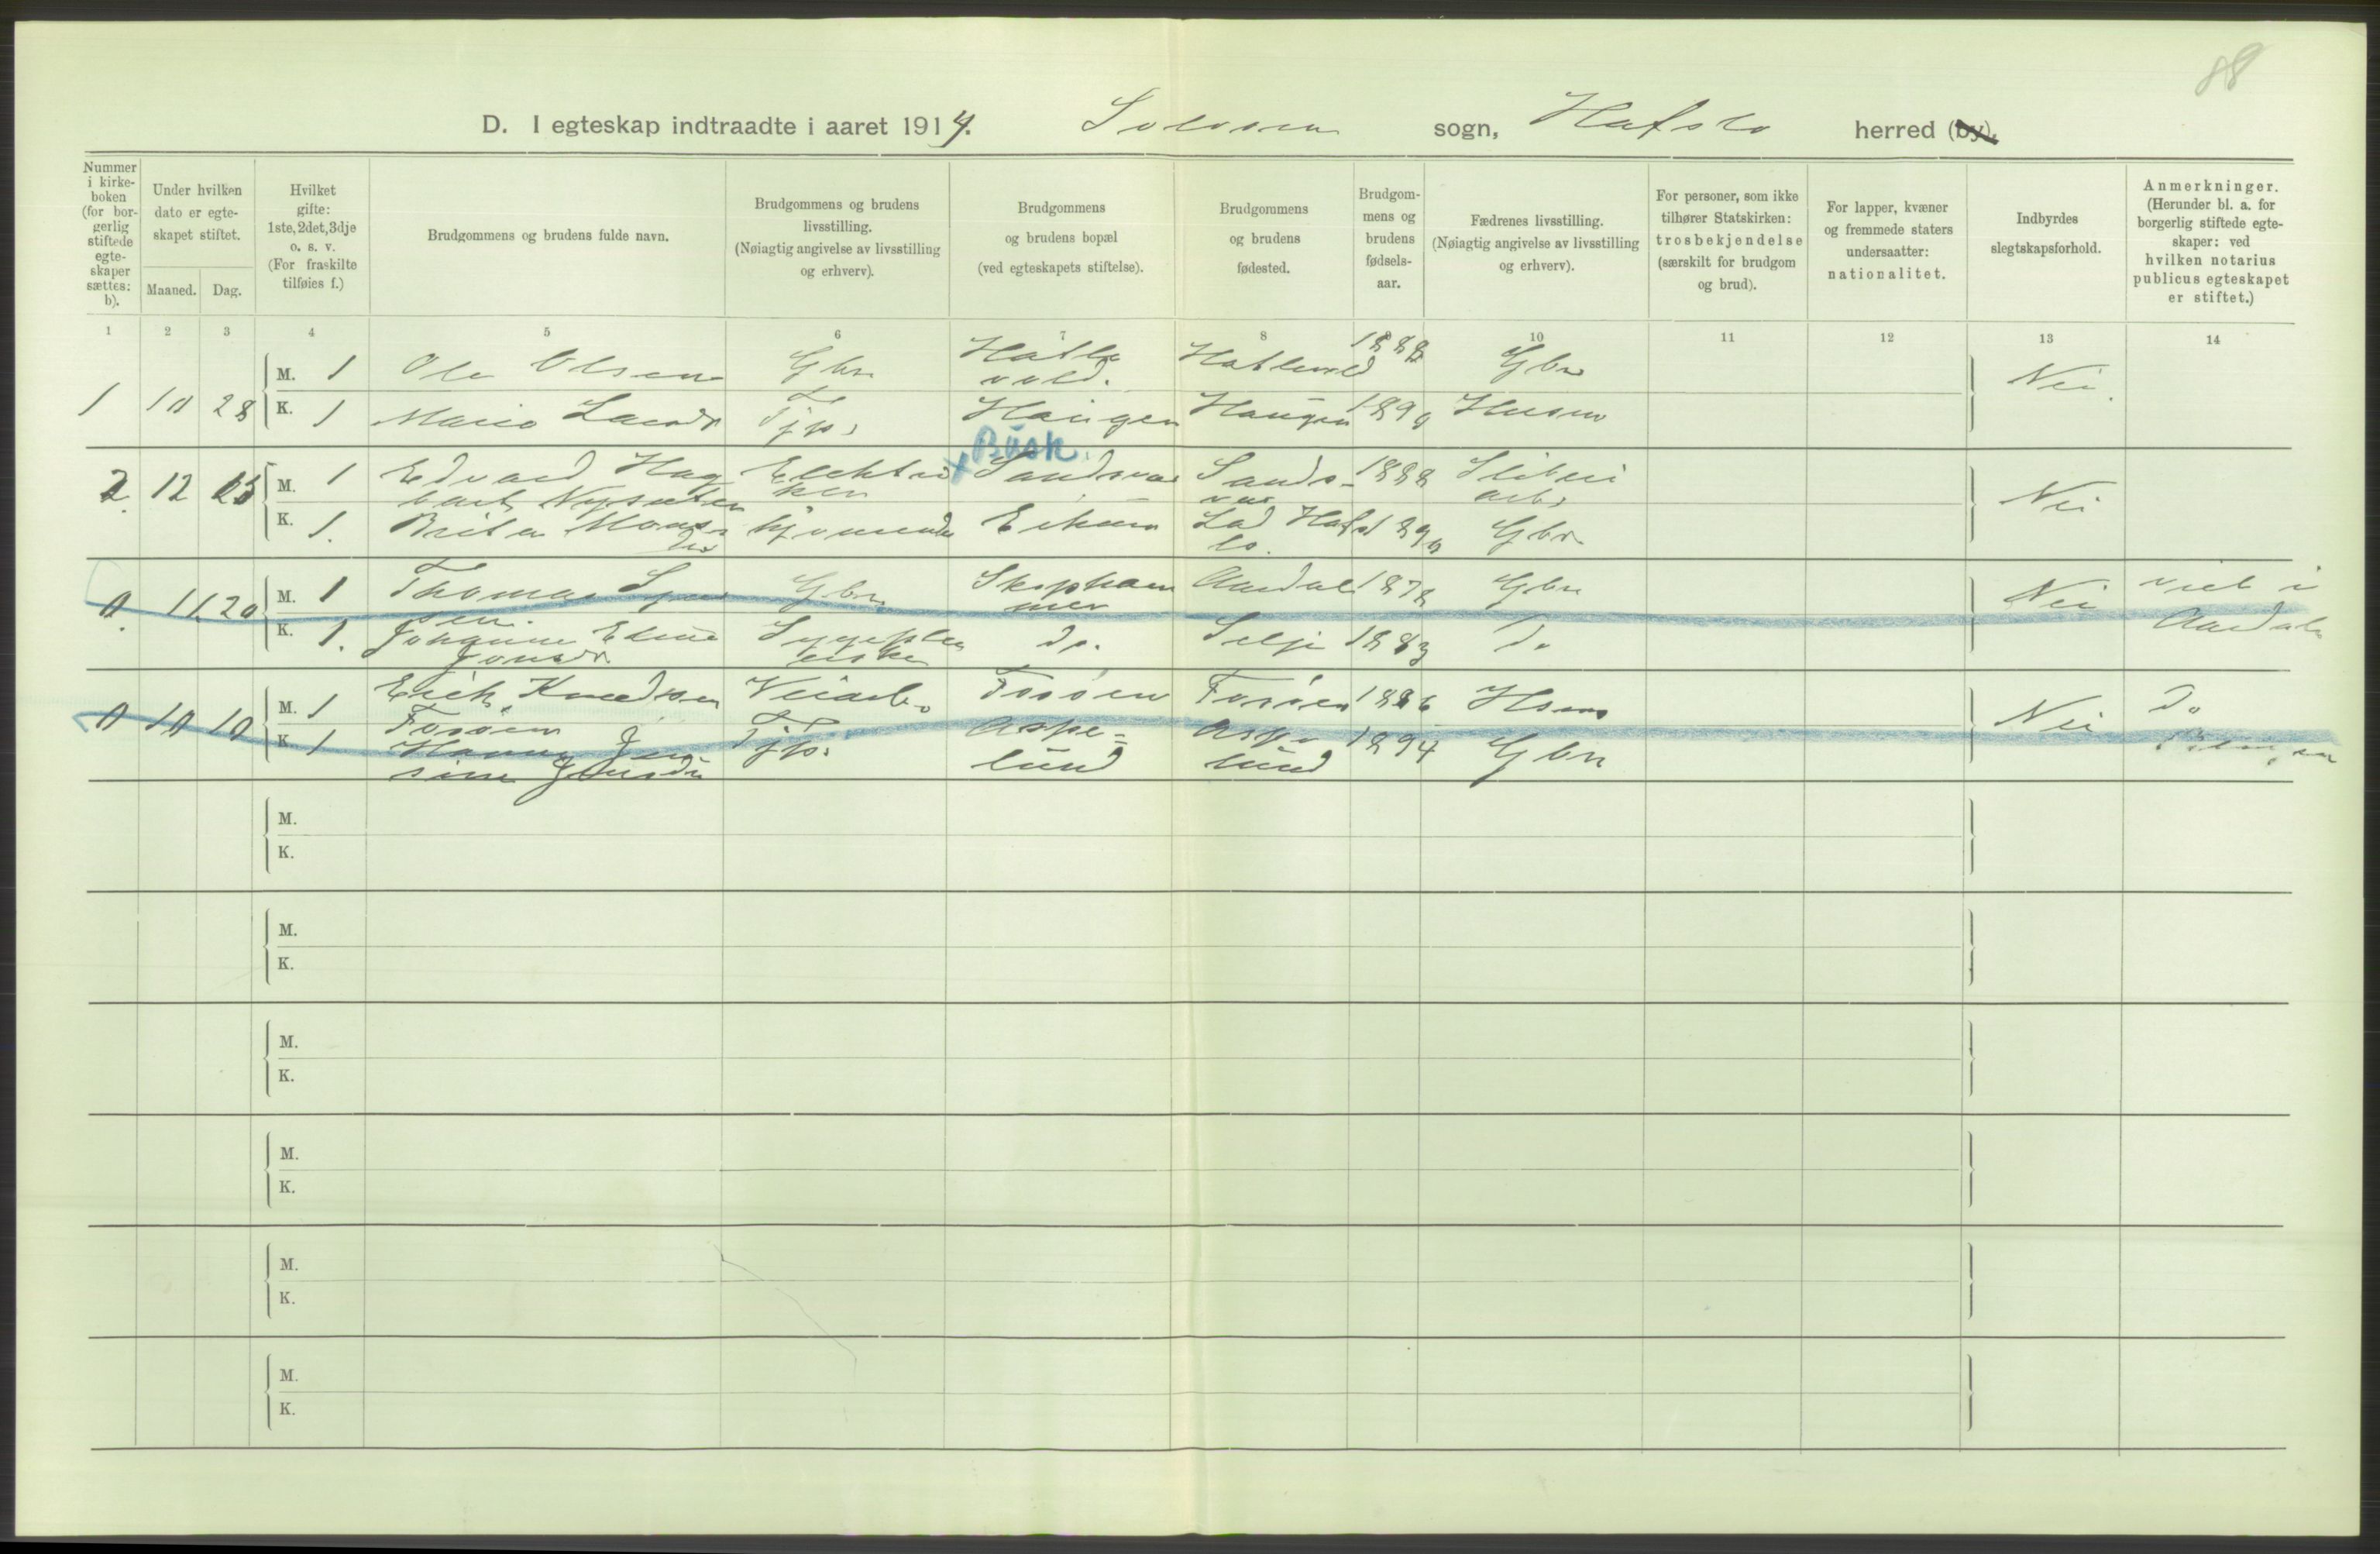 88
D. I egteskap indtraadte i aaret 1914. Solvorn sogn, Hafslo herred (by).
Nummer i kirke-boken (for bor-gerlig stiftede egte-skaper sættes: b).
Under hvilken dato er egte-skapet stiftet.
Maaned. Dag.
Hvilket gifte: 1ste, 2det, 3dje o. s. v. (For fraskilte tilføies f.)
Brudgommens og brudens fulde navn.
Brudgommens og brudens livsstilling. (Nøiagtig angivelse av livsstilling og erhverv).
Brudgommens og brudens bopæl (ved egteskapets stiftelse).
Brudgommens og brudens fødested.
Brudgom-mens og brudens fødsels-aar.
Fædrenes livsstilling. (Nøiagtig angivelse av livsstilling og erhverv).
For personer, som ikke tilhører Statskirken: trosbekjendelse (særskilt for brudgom og brud).
For lapper, kvæner og fremmede staters undersaatter: nationalitet.
Indbyrdes slegtskapsforhold.
Anmerkninger. (Herunder bl. a. for borgerlig stiftede egte-skaper: ved hvilken notarius publicus egteskapet er stiftet.)
1 2 3 4 5 6 7 8 9 10 11 12 13 14
1 10 28
M. 1 Ole Olsen Gbr Hatlevold. Hatlevold 1888 Gbr Nei.
K. 1 Marie Larsdr Tjp. Haugen Haugen 1890 Husm
Busk.
2. 12
M. 1 Edvard Hagbart Elektriker x Sandsvær Sandsvær 1888 Sliberiarb. Nei
K. 1. Brita Monsdr hjemme Lad Hafslo. 1890 Gbr
0. 11 20
M. 1 Thomas Gbr. Skiphammer Aardal 1878 Gbr Nei viet i Aardal
K. 1. Johanne Eline Jonsdr Sygepleierske do. Selje 1883 do
0 10 10
M. 1 Erik Knudsen Fosøen Veiarb. Fosøen Fosøen 1886 Hsm Nei do
K. 1 Hanna Jensine Jensdr Tjp. Aspelund Aspelund 1894 Gbr
M.
K.
M.
K.
M.
K.
M.
K.
M.
K.
M.
K.